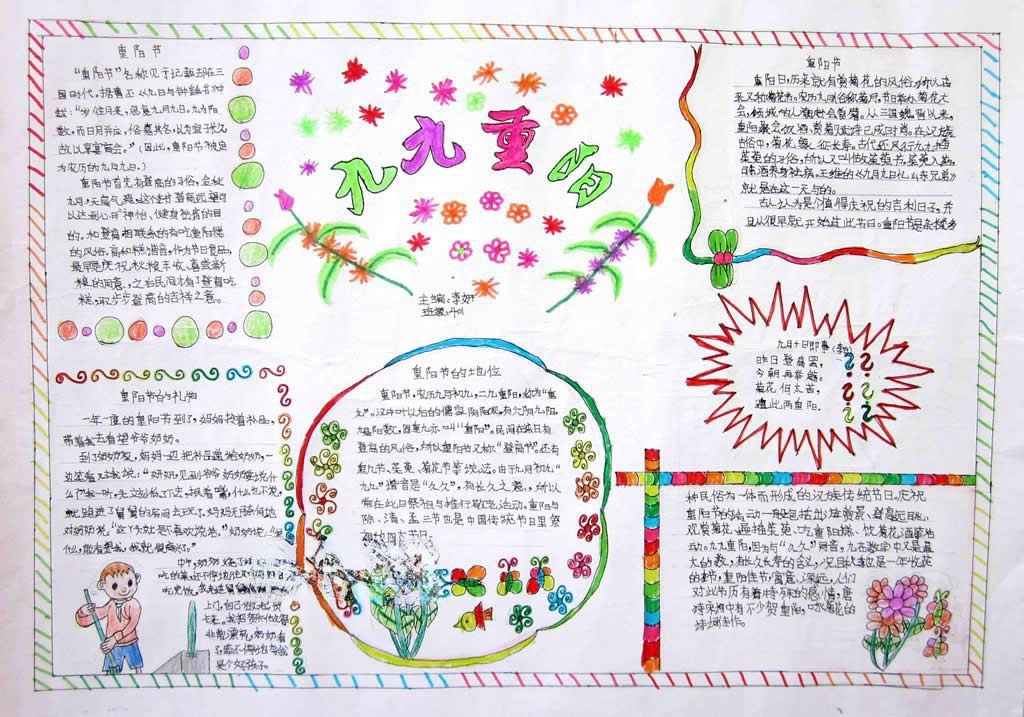 九九重阳
主编:李妍
班级:401
重阳节
"重阳节"名称见于记载却在三
国时代。据曹丕《九日与钟繇书》中
载:"岁往月来,忽复九月九日。九为阳
数,而日月并应,俗嘉其名,以为宜于长久,
故以享宴高会。"(因此,重阳节被定
为农历的九月九日。)
重阳节首先有登高的习俗,金秋
九月,天高气爽,这个季节登高远望可
以达到心旷神怡、健身祛病的目
的。和登高相联系的有吃重阳糕
的风俗。高和糕谐音,作为节日食品,
最早是庆祝秋粮丰收、喜尝新
粮的用意,之后民间才有了登高吃
糕,取步步登高的吉祥之意。
重阳节
重阳日,历来就有赏菊花的风俗,所以古
来又称菊花节。农历九月俗称菊月,节日举办菊花大
会,倾城的人潮赴会赏菊。从三国魏晋以来,
重阳聚会饮酒、赏菊赋诗已成时尚。在汉族
古俗中,菊花象征长寿。古代还风行九九插
茱萸的习俗,所以又叫做茱萸节。茱萸入药,
制酒养身祛病。王维的《九月九日忆山东兄弟》
就是在这一天写的。
古人认为是个值得庆祝的吉利日子,并
且从很早就开始过此节日。重阳节是杂糅多
种民俗为一体而形成的汉族传统节日。庆祝
重阳节的活动一般包括出游赏景、登高远眺、
观赏菊花、遍插茱萸、吃重阳糕、饮菊花酒等活
动。九九重阳,因为与"久久"同音,九在数字中又是最
大的数,有长久长寿的含义,况且秋季也是一年收获
的季节,重阳佳节,寓意深远,人们
对此节历有着特殊的感情,唐
诗宋词中有不少贺重阳,咏菊花的
诗词佳作。
九月十日即事(李白)
昨日登高罢,
今朝再举觞。
菊花何太苦,
遭此两重阳。
重阳节的礼物
一年一度的重阳节到了,妈妈拎着礼品,
带着我去看望爷爷奶奶。
到了奶奶家,妈妈一边把礼品递给奶奶,一
边笑着对我说:"妍妍,见到爷爷奶奶要说什
么?"我一听,
就跑进了舅舅的房间去玩了。妈妈无奈何地
对奶奶说:"这个孩子就是不喜欢说话。"奶奶说:"没
什么,能看看我,我就很高兴了。"
重阳节的地位
重阳节,农历九月初九,二九重阳,称为"重
九"。汉中叶以后的儒家阴阳观,有六阴九阳。
九是阳数,固重九亦叫"重阳"。民间在该日有
登高的风俗,所以重阳节又称"登高节"。还有
重九节、茱萸、菊花节等说法。由于九月初九"
九九"谐音是"久久",有长久之意,所以
常在此日祭祖与推行敬老活动。重阳与
除、清、盂三节也是中国传统节日里祭
祖的四大节日。